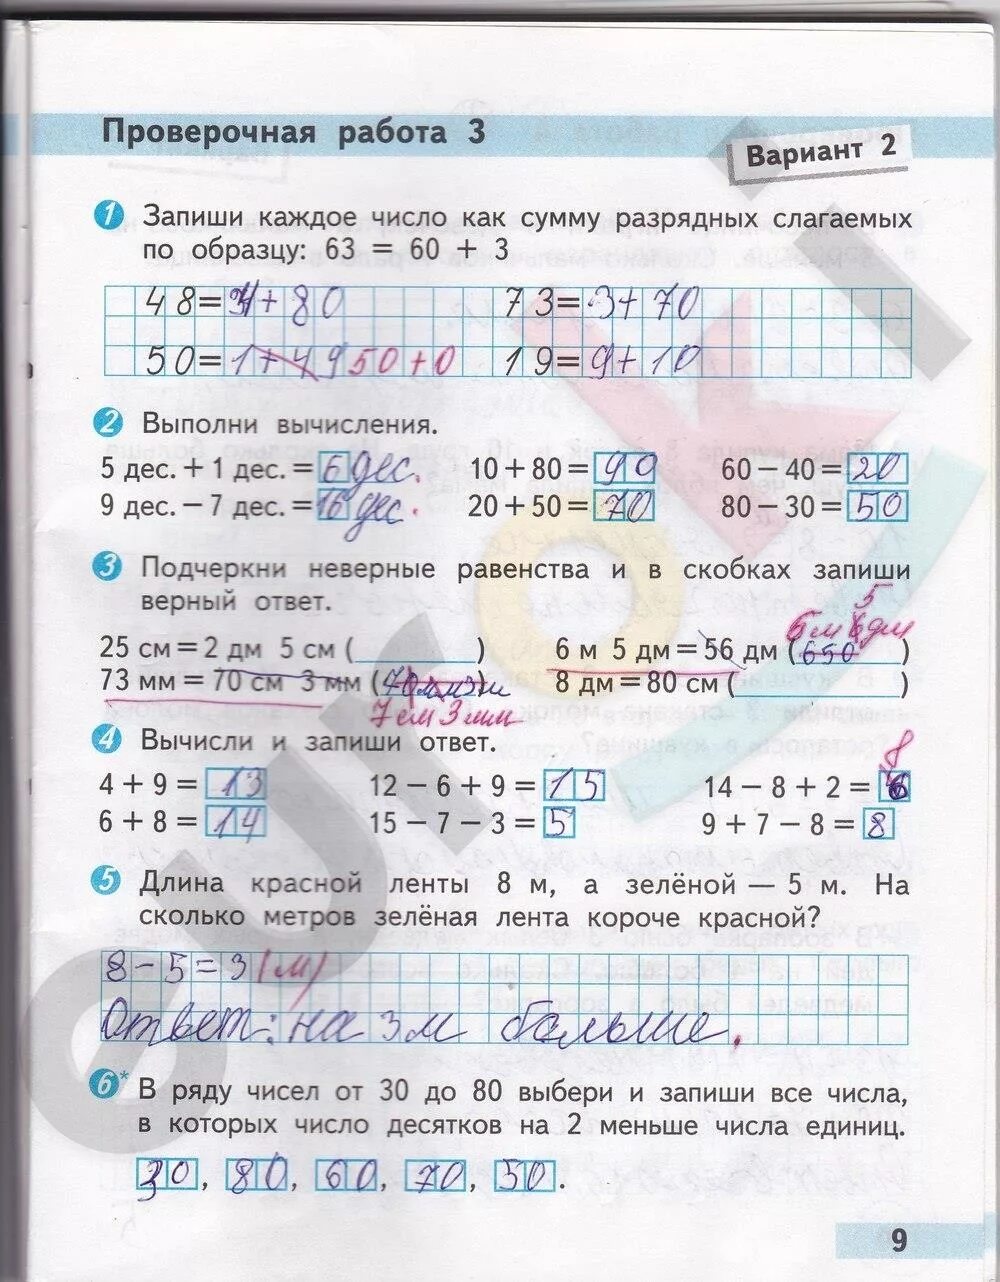 Проверочная работа 3
Вариант 2
1 Запиши каждое число как сумму разрядных слагаемых
по образцу: 63 = 60 + 3
48= + 80 73=3+70
50=1+49 50+0 19=9+10
2 Выполни вычисления.
5 дес. + 1 дес. = 6 дес. 10 + 80 = 90 60 – 40 = 20
9 дес. – 7 дес. = 16 дес. 20 + 50 = 70 80 – 30 = 50
3 Подчеркни неверные равенства и в скобках запиши
верный ответ.
5
6м 6дм
25 см = 2 дм 5 см ( ) 6 м 5 дм = 56 дм (650 )
73 мм = 70 см 3 мм ( ) 8 дм = 80 см ( )
7см 3мм
4 Вычисли и запиши ответ.
8
4 + 9 = 13 12 – 6 + 9 = 15 14 – 8 + 2 = 6
6 + 8 = 14 15 – 7 – 3 = 5 9 + 7 – 8 = 8
5 Длина красной ленты 8 м, а зелёной — 5 м. На
сколько метров зелёная лента короче красной?
8 – 5 = 3 (м)
Ответ: на 3м больше.
6* В ряду чисел от 30 до 80 выбери и запиши все числа,
в которых число десятков на 2 меньше числа единиц.
30, 80, 60, 70, 50.
9
euroki